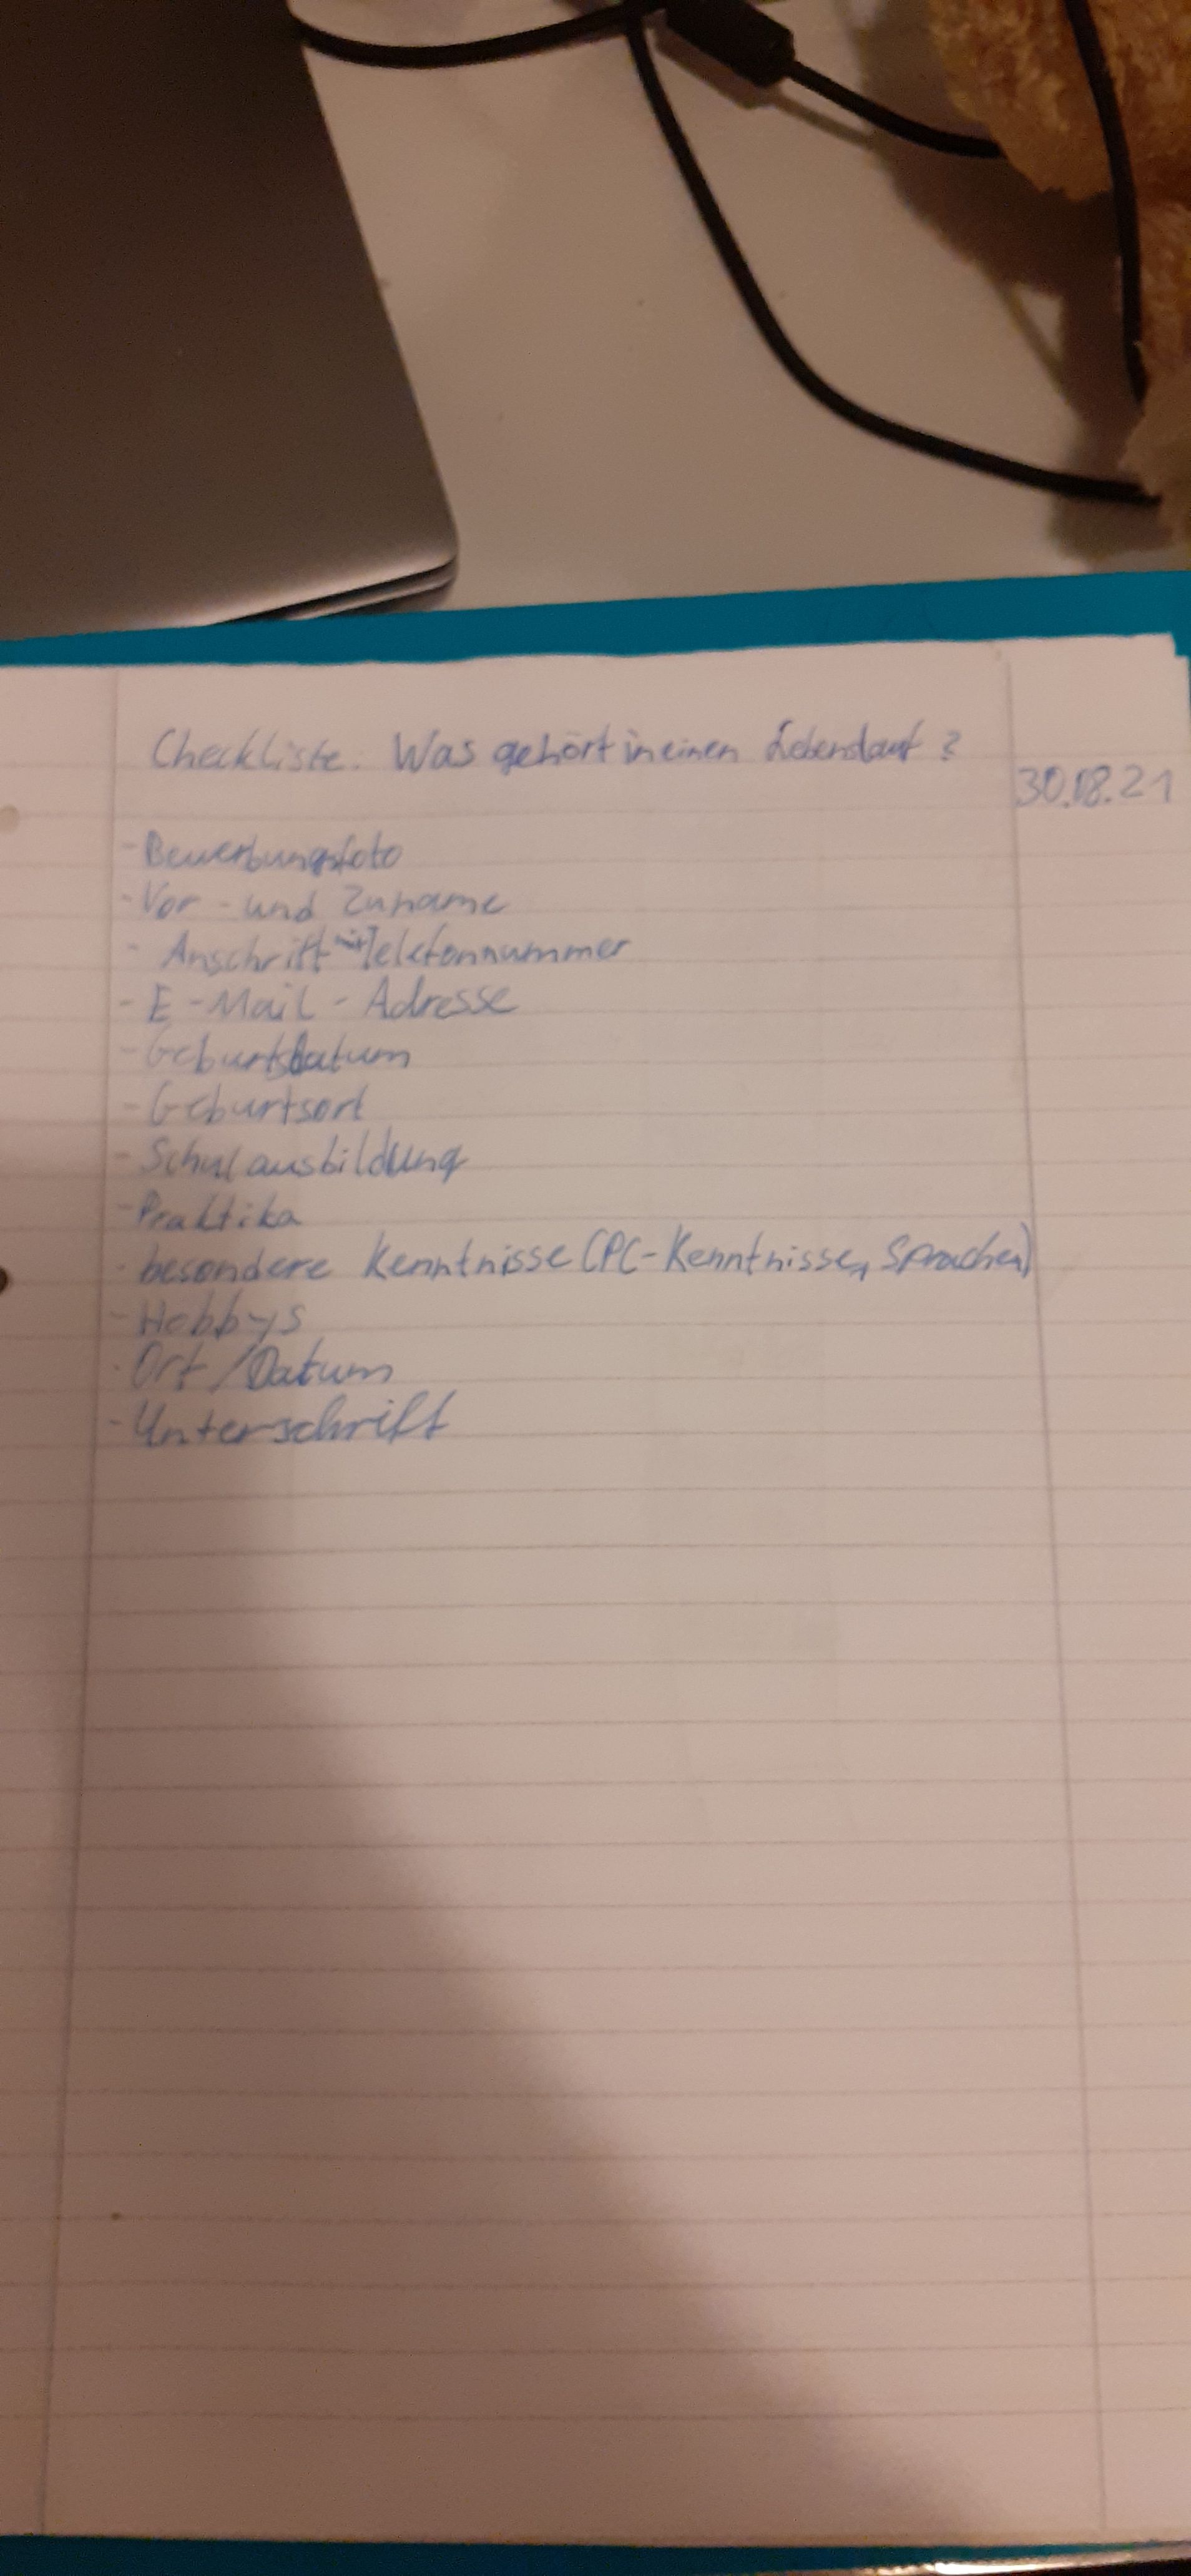 Checkliste. Was gehört in einen Lebenslauf?
30.08.21
- Bewerbungsfoto
- Vor- und Zuname
- Anschrift mit Telefonnummer
- E-Mail-Adresse
- Geburtsdatum
- Geburtsort
- Schulausbildung
- Praktika
- besondere Kenntnisse (PC-Kenntnisse, Sprachen)
- Hobbys
- Ort/Datum
- Unterschrift